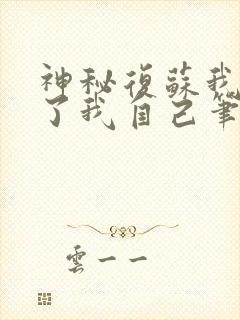 神秘復蘇我
了我自己筆
雲一一